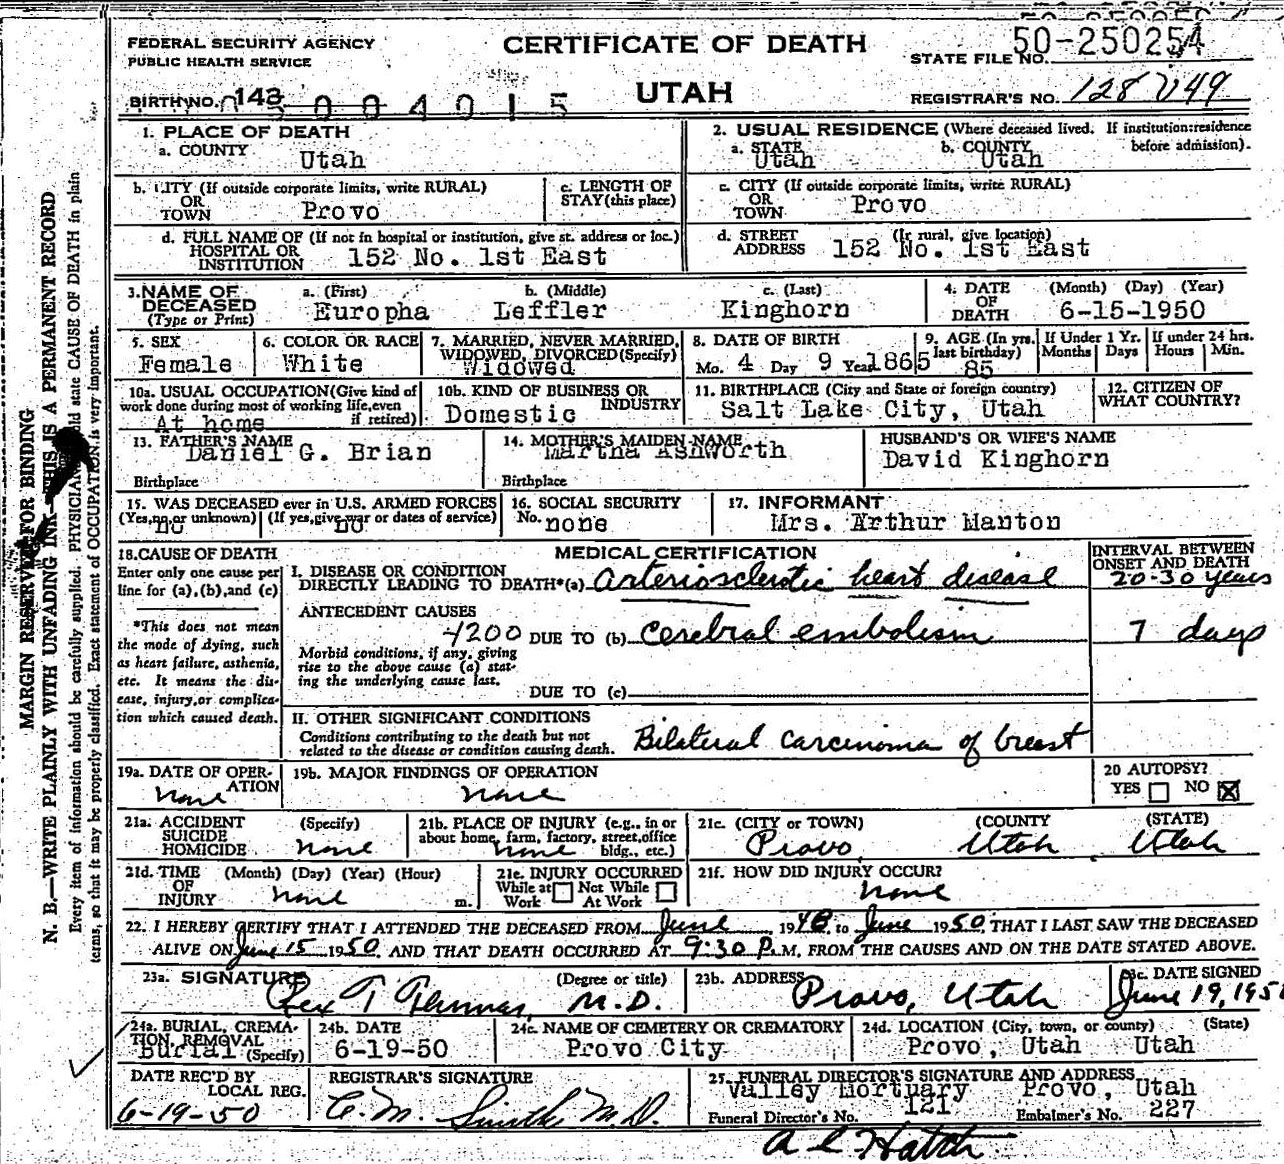 FEDERAL SECURITY AGENCY
PUBLIC HEALTH SERVICE
CERTIFICATE OF DEATH
UTAH
STATE FILE NO. 50-250254
BIRTH NO. 143
004015
REGISTRAR'S NO. 128
1. PLACE OF DEATH
a. COUNTY Utah
2. USUAL RESIDENCE (Where deceased lived. If institution: residence before admission).
a. STATE Utah b. COUNTY Utah
b. CITY (If outside corporate limits, write RURAL) OR TOWN Provo
c. LENGTH OF STAY (this place)
c. CITY (If outside corporate limits, write RURAL) OR TOWN Provo
d. FULL NAME OF (If not in hospital or institution, give st. address or loc.) HOSPITAL OR INSTITUTION 152 No. 1st East
d. STREET ADDRESS (If rural, give location) 152 No. 1st East
3. NAME OF DECEASED (Type or Print)
a. (First) Europha b. (Middle) Leffler c. (Last) Kinghorn
4. DATE OF DEATH (Month) (Day) (Year) 6-15-1950
5. SEX Female
6. COLOR OR RACE White
7. MARRIED, NEVER MARRIED, WIDOWED, DIVORCED (Specify) Widowed
8. DATE OF BIRTH Mo. 4 Day 9 Year 1865
9. AGE (In yrs. last birthday) 85
If Under 1 Yr. Months Days
If under 24 hrs. Hours Min.
10a. USUAL OCCUPATION (Give kind of work done during most of working life, even if retired) At home
10b. KIND OF BUSINESS OR INDUSTRY Domestic
11. BIRTHPLACE (City and State or foreign country) Salt Lake City, Utah
12. CITIZEN OF WHAT COUNTRY?
13. FATHER'S NAME Daniel G. Brian
Birthplace
14. MOTHER'S MAIDEN NAME Martha Ashworth
Birthplace
HUSBAND'S OR WIFE'S NAME
David Kinghorn
15. WAS DECEASED ever in U.S. ARMED FORCES
(Yes, no or unknown) no (If yes, give war or dates of service) no
16. SOCIAL SECURITY No. none
17. INFORMANT
Mrs. Arthur Manton
18. CAUSE OF DEATH
Enter only one cause per line for (a), (b), and (c)
*This does not mean the mode of dying, such as heart failure, asthenia, etc. It means the disease, injury, or complication which caused death.
MEDICAL CERTIFICATION
INTERVAL BETWEEN ONSET AND DEATH
I. DISEASE OR CONDITION DIRECTLY LEADING TO DEATH* (a) Arteriosclerotic heart disease 20-30 years
ANTECEDENT CAUSES
4200 DUE TO (b) Cerebral embolism 7 days
Morbid conditions, if any, giving rise to the above cause (a) stating the underlying cause last.
DUE TO (c)
II. OTHER SIGNIFICANT CONDITIONS
Conditions contributing to the death but not related to the disease or condition causing death. Bilateral carcinoma of breast
19a. DATE OF OPERATION none
19b. MAJOR FINDINGS OF OPERATION
none
20 AUTOPSY?
YES NO X
21a. ACCIDENT SUICIDE HOMICIDE (Specify) none
21b. PLACE OF INJURY (e.g., in or about home, farm, factory, street, office bldg., etc.) none
21c. (CITY or TOWN) (COUNTY (STATE)
Provo, Utah Utah
21d. TIME OF INJURY (Month) (Day) (Year) (Hour) m. none
21e. INJURY OCCURRED
While at Work Not While At Work
21f. HOW DID INJURY OCCUR?
none
22. I HEREBY CERTIFY THAT I ATTENDED THE DECEASED FROM June, 1948, to June 1950, THAT I LAST SAW THE DECEASED
ALIVE ON June 15 1950 AND THAT DEATH OCCURRED AT 9:30 P.M. FROM THE CAUSES AND ON THE DATE STATED ABOVE.
23a. SIGNATURE (Degree or title)
Rex T M.D.
23b. ADDRESS
Provo, Utah
23c. DATE SIGNED
June 19, 195
24a. BURIAL, CREMATION, REMOVAL (Specify) Burial
24b. DATE
6-19-50
24c. NAME OF CEMETERY OR CREMATORY
Provo City
24d. LOCATION (City, town, or county) (State)
Provo, Utah Utah
DATE REC'D BY LOCAL REG.
6-19-50
REGISTRAR'S SIGNATURE
C.M. Smith M.D.
25. FUNERAL DIRECTOR'S SIGNATURE AND ADDRESS
Valley Mortuary Provo, Utah
Funeral Director's No. 121 Embalmer's No. 227
A L Hatch
MARGIN RESERVED FOR BINDING
N. B.—WRITE PLAINLY WITH UNFADING INK—THIS IS A PERMANENT RECORD
Every item of information should be carefully supplied. PHYSICIAN should state CAUSE OF DEATH in plain
terms, so that it may be properly classified. Exact statement of OCCUPATION is very important.